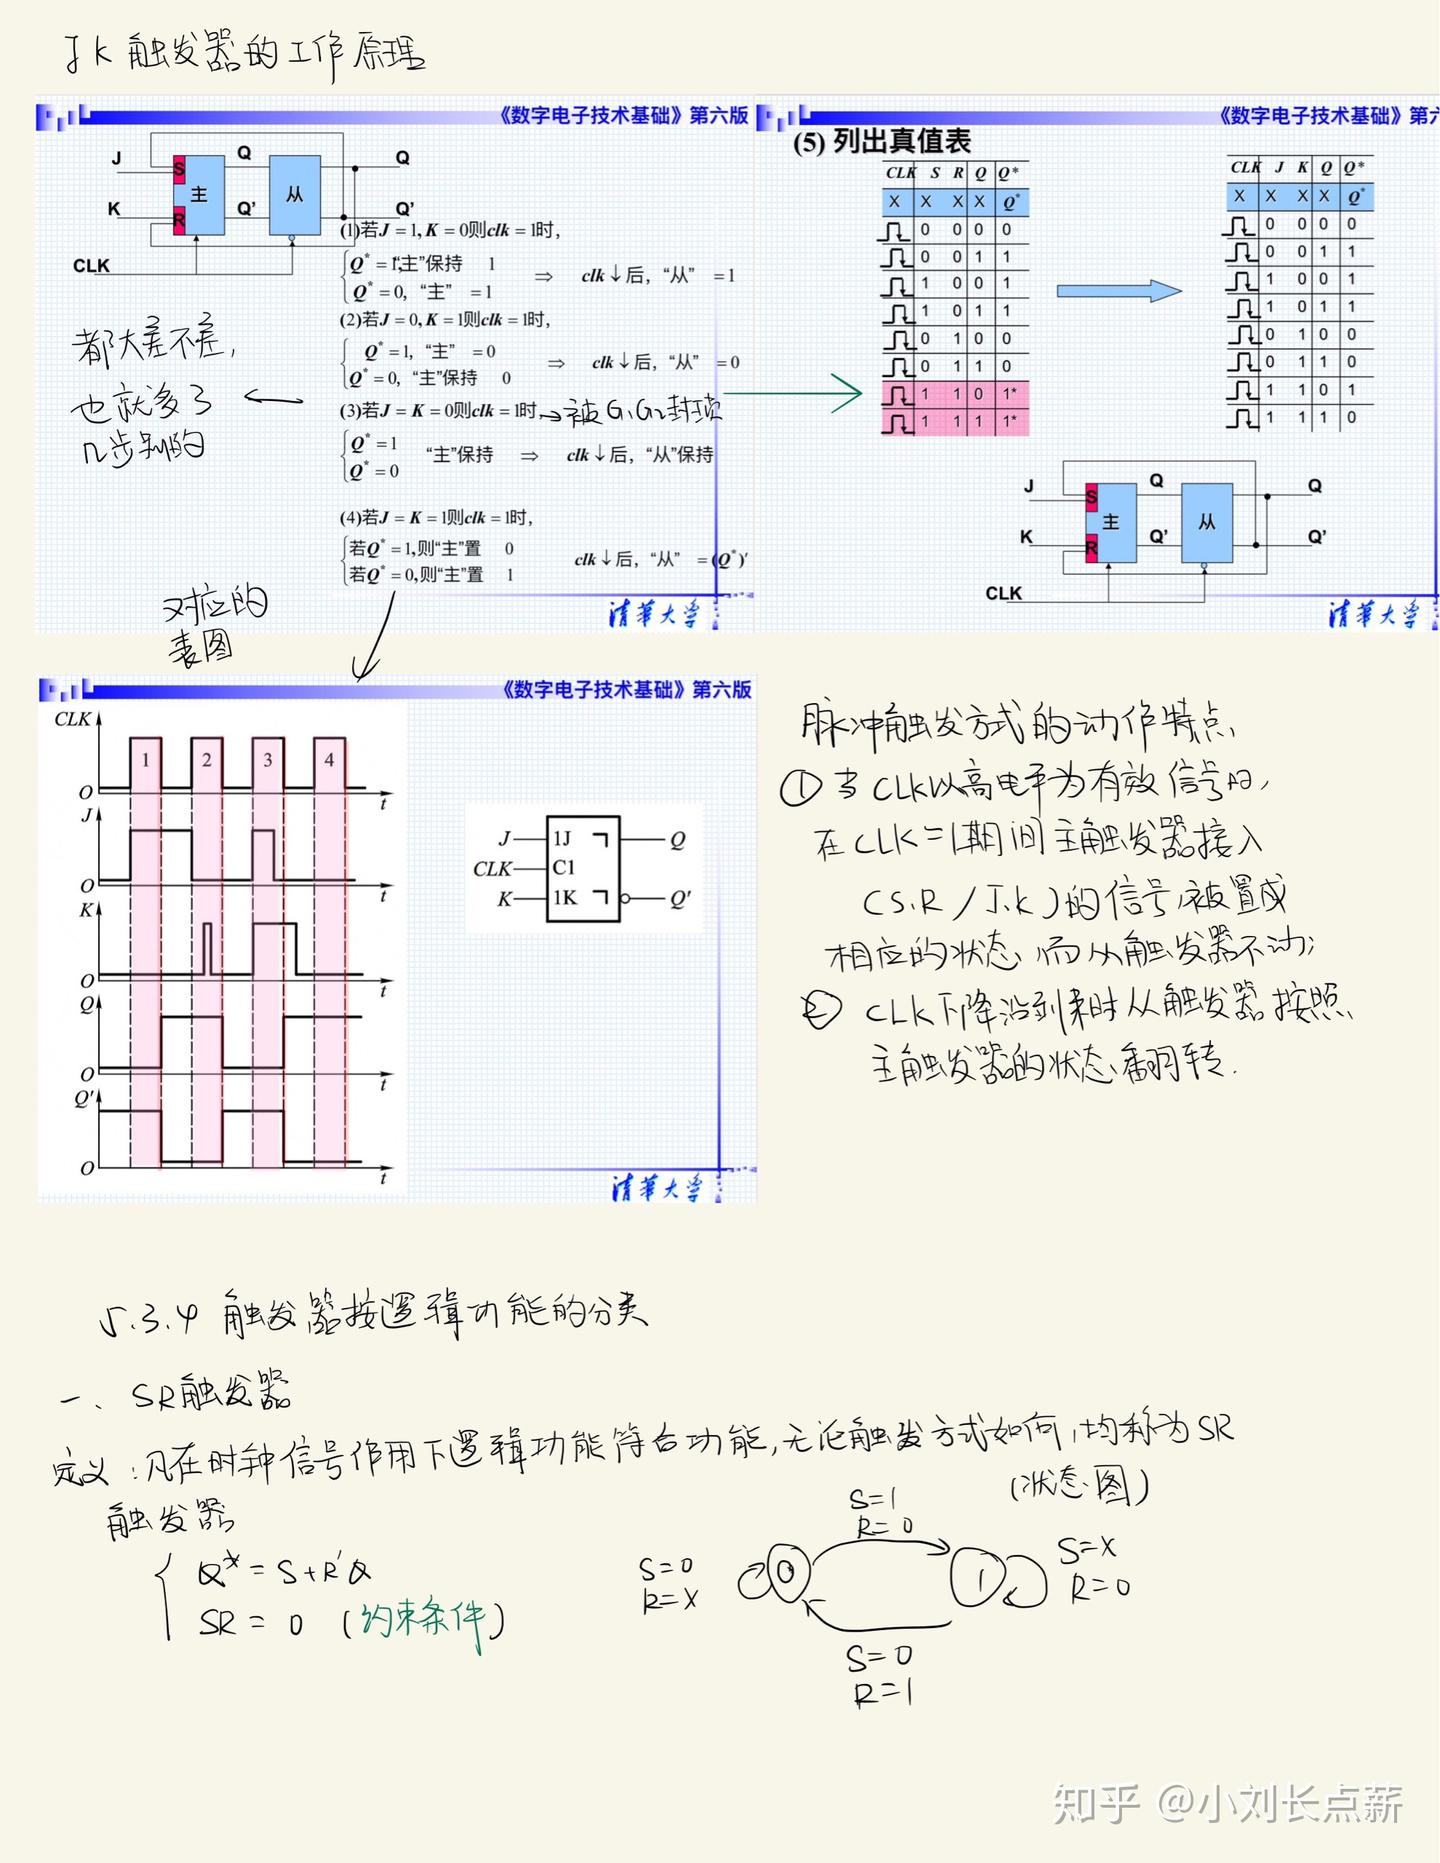 JK触发器的工作原理
《数字电子技术基础》第六版
J
K
CLK
S
R
主
从
Q
Q'
Q
Q'
(1)若J = 1, K = 0则clk = 1时,
Q* = 1,“主”保持 1
Q* = 0, “主” = 1
⇒ clk↓后, “从” = 1
(2)若J = 0, K = 1则clk = 1时,
Q* = 1, “主” = 0
Q* = 0, “主”保持 0
⇒ clk↓后, “从” = 0
(3)若J = K = 0则clk = 1时 → 被G₁G₂封锁
Q* = 1
Q* = 0
“主”保持 ⇒ clk↓后, “从”保持
(4)若J = K = 1则clk = 1时,
若Q* = 1,则“主”置 0
若Q* = 0,则“主”置 1
clk↓后, “从” = (Q*)'
都大差不差,
也就多了
几步别的
对应的
表图
清華大学
《数字电子技术基础》第六版
(5) 列出真值表
CLK S R Q Q*
X X X X Q*
0 0 0 0
0 0 1 1
1 0 0 1
1 0 1 1
0 1 0 0
0 1 1 0
1 1 0 1*
1 1 1 1*
CLK J K Q Q*
X X X X Q*
0 0 0 0
0 0 1 1
1 0 0 1
1 0 1 1
0 1 0 0
0 1 1 0
1 1 0 1
1 1 1 0
J
K
CLK
S
R
主
从
Q
Q'
Q
Q'
清華大学
《数字电子技术基础》第六版
CLK
1 2 3 4
O t
J
O t
K
O t
Q
O t
Q'
O t
J 1J Q
CLK C1
K 1K Q'
清華大学
脉冲触发方式的动作特点
① 当CLK以高电平为有效信号时,
在CLK=1期间主触发器接入
(S.R/J.K)的信号,被置成
相应的状态,而从触发器不动;
② CLK下降沿到来时从触发器按照
主触发器的状态翻转.
5.3.4 触发器按逻辑功能的分类
一、SR触发器
定义:凡在时钟信号作用下逻辑功能符合功能,无论触发方式如何,均称为SR
触发器
Q* = S+R'Q
SR = 0 (约束条件)
(状态图)
S=1
R=0
S=0
R=X
0
1
S=X
R=0
S=0
R=1
知乎 @小刘长点薪